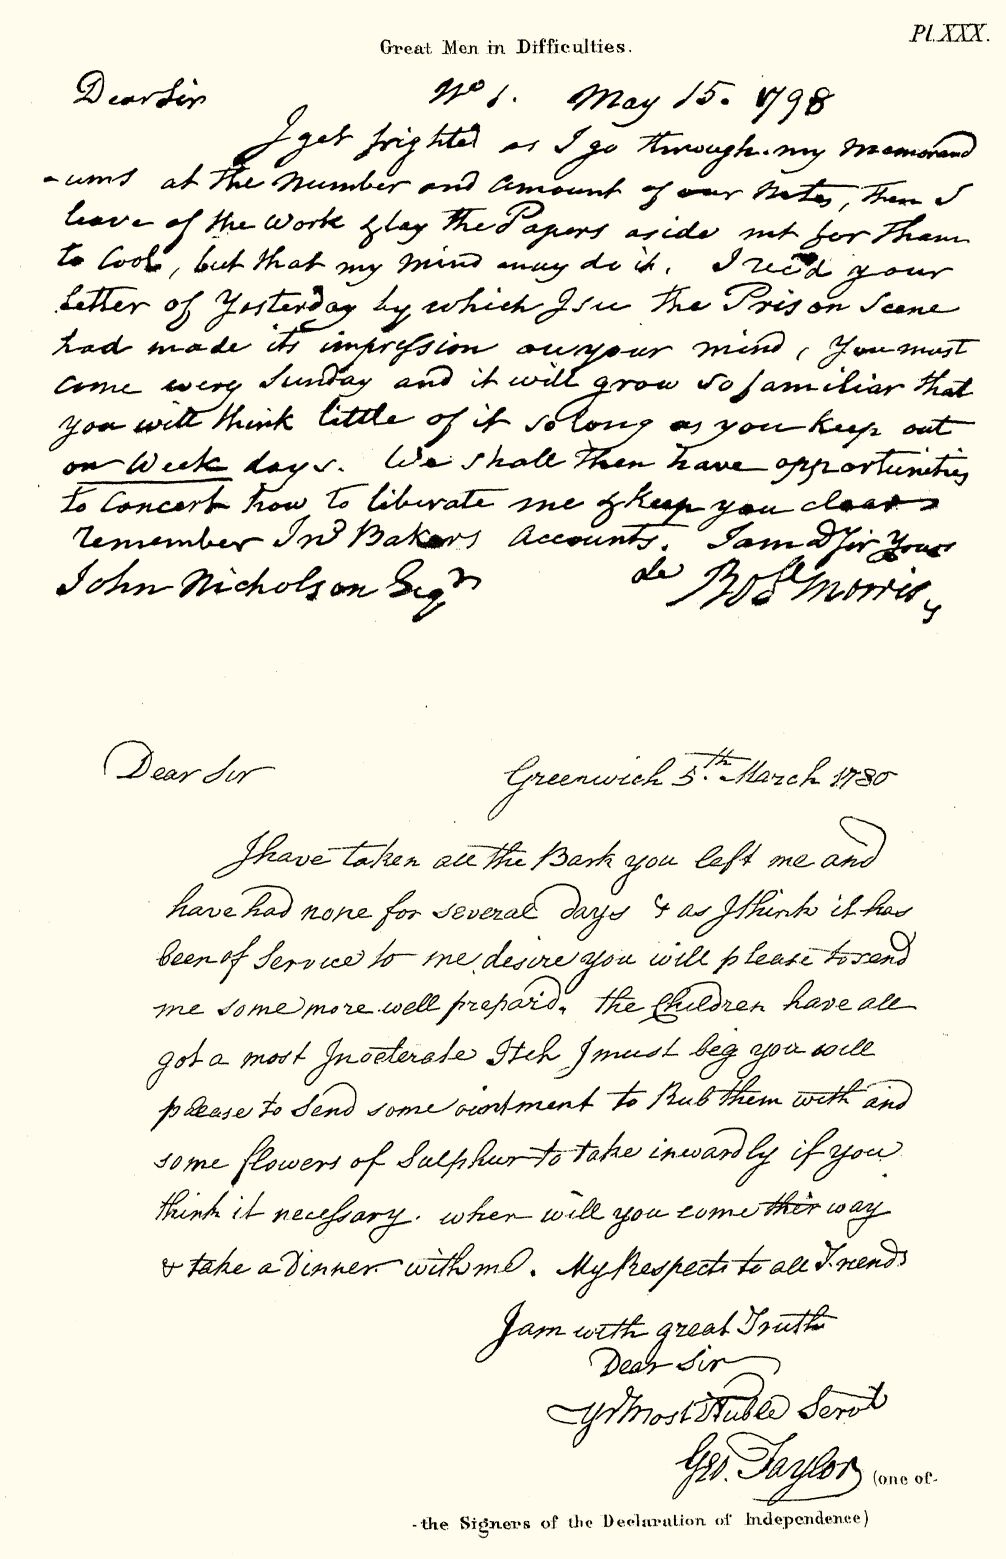 Pl. XXX.
Great Men in Difficulties.
Dear Sir No 1. May 15. 1798
I get frighted as I go through my Memorand
-ums at the Number and Amount of our Notes, then I
leave of the Work & lay the Papers aside not for them
to Cool, but that my Mind may do it. I rec'd your
letter of Yesterday by which I see the Prison Scene
had made its impression on your mind, You must
come every Sunday and it will grow so familiar that
you will think little of it so long as you keep out
on Week days. We shall then have opportunities
to Concert how to liberate me & keep you clear
remember Jno Bakers Accounts. I am D Sir Yours
John Nicholson Esqr Robt Morris
Dear Sir Greenwich 5th March 1780
I have taken all the Bark you left me and
have had none for several days & as I think it has
been of Service to me desire you will please to send
me some more well prepar'd. the Children have all
got a most Inveterate Itch I must beg you will
please to Send some ointment to Rub them with and
some flowers of Sulphur to take inwardly if you
think it necessary. when will you come this way
& take a Dinner with me. My Respects to all Friends
I am with great Truth
Dear Sir
Yr Most Huble Servt
Geo. Taylor (one of-
-the Signers of the Declaration of Independence)